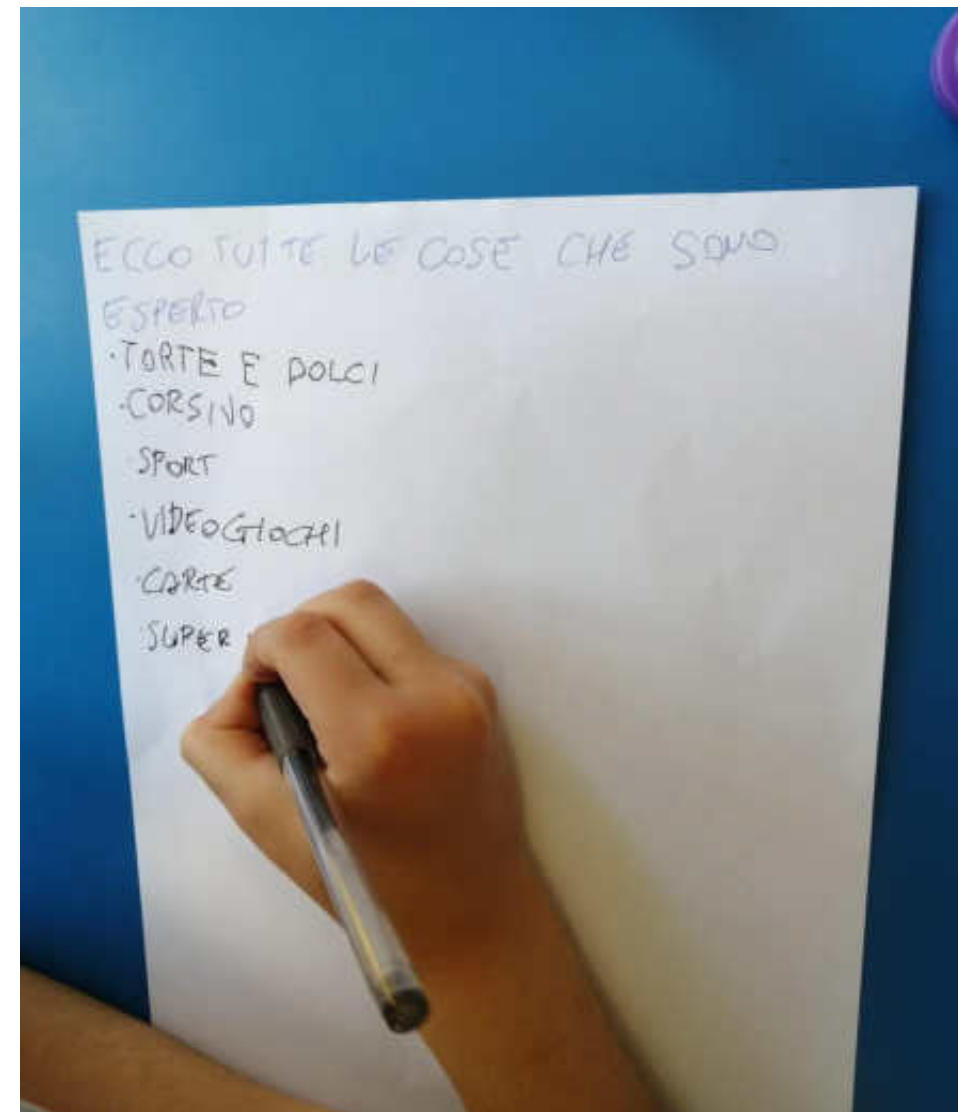 ECCO TUTTE LE COSE CHE SONO
ESPERTO
·TORTE E DOLCI
·CORSIVO
·SPORT
·VIDEOGIOCHI
·CARTE
·SUPER